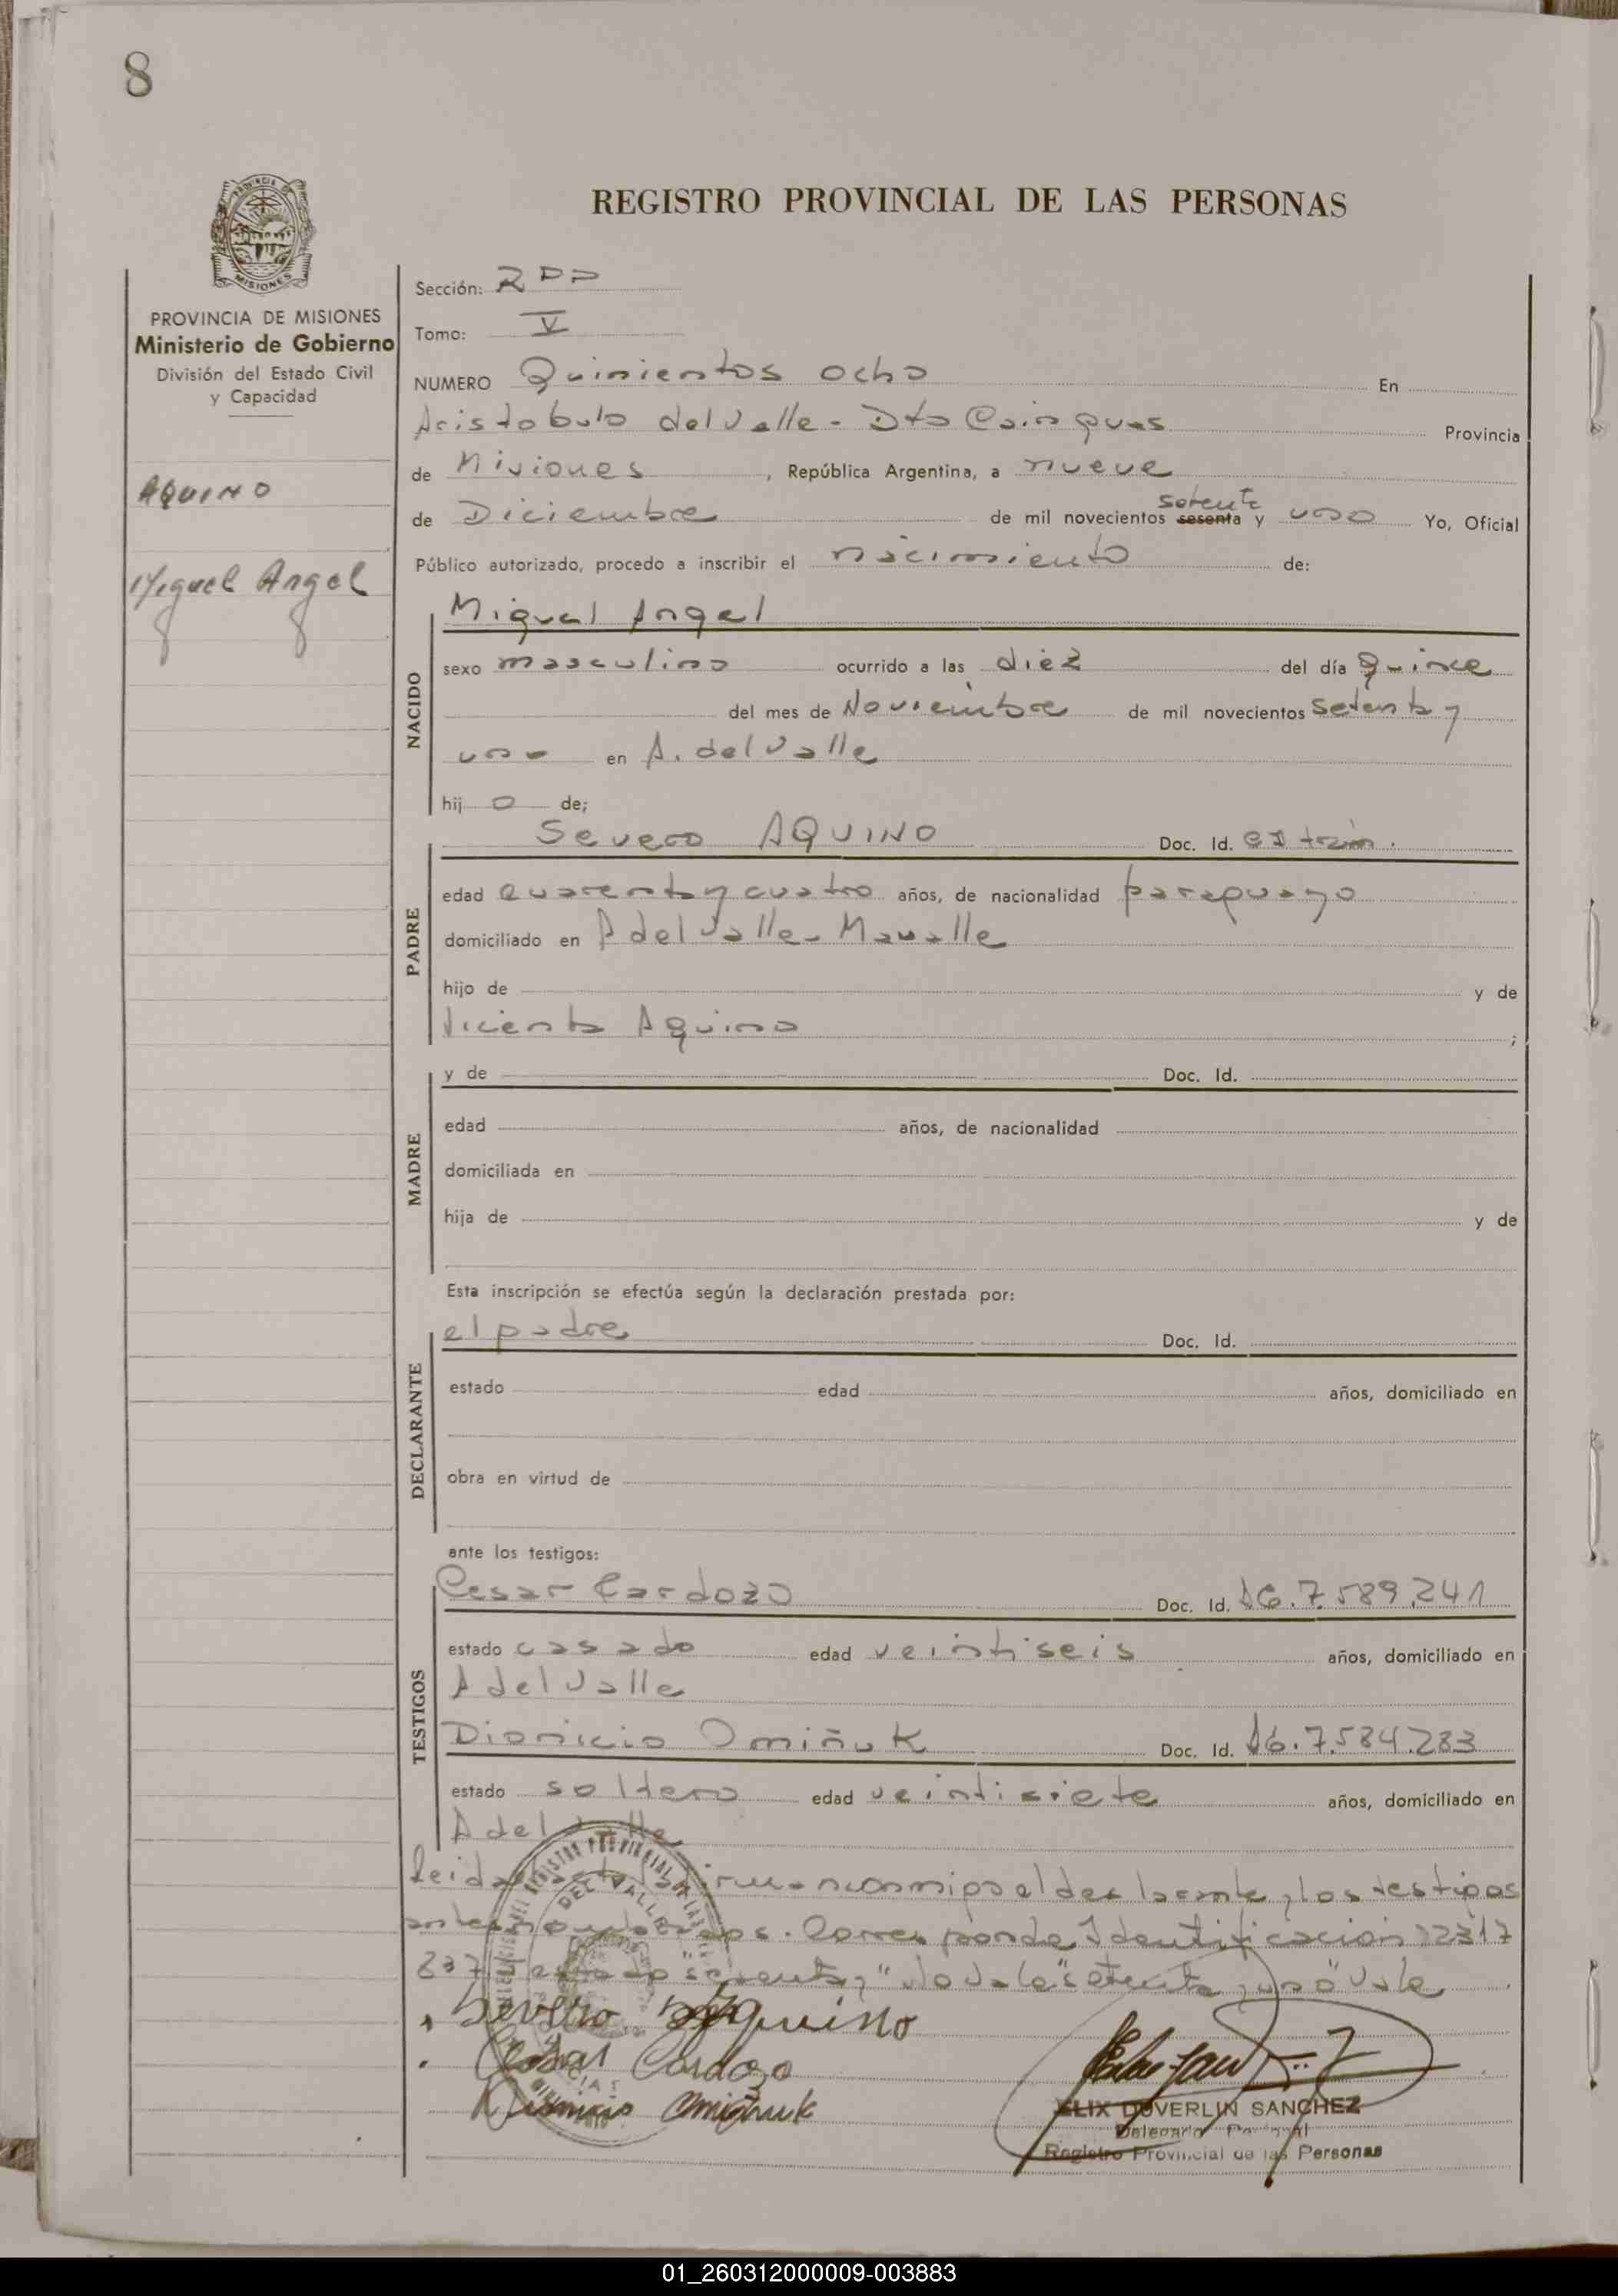 8
REGISTRO PROVINCIAL DE LAS PERSONAS
MISIONES
PROVINCIA DE MISIONES
Ministerio de Gobierno
División del Estado Civil
y Capacidad
AQUINO
Miguel Angel
Sección: RPP
Tomo: V
NUMERO Quinientos ocho En
Aristobulo del Valle - Dto Cainguas Provincia
de Misiones, República Argentina, a nueve
setenta
de Diciembre de mil novecientos sesenta y uno Yo, Oficial
Público autorizado, procedo a inscribir el nacimiento de:
NACIDO
Miguel Angel
sexo masculino ocurrido a las diez del día quince
del mes de Noviembre de mil novecientos setenta y
uno en A. del Valle
hij o de;
PADRE
Severo AQUINO Doc. Id.
edad cuarenta y cuatro años, de nacionalidad paraguayo
domiciliado en A del Valle -
hijo de y de
Vicenta Aquino ;
MADRE
y de Doc. Id.
edad años, de nacionalidad
domiciliada en
hija de y de
Esta inscripción se efectúa según la declaración prestada por:
DECLARANTE
el padre Doc. Id.
estado edad años, domiciliado en
obra en virtud de
ante los testigos:
TESTIGOS
Cesar Cardozo Doc. Id. 7.589.241
estado casado edad veintiseis años, domiciliado en
A del Valle
Dionicio Omiñuk Doc. Id. 7.584.283
estado soltero edad veintisiete años, domiciliado en
A del Valle
Leida el declarante y los testigos
. Corresponde Identificación 12317
"setenta y uno" Vale
Severo Aquino
Cesar Cardozo
Dionicio Omiñuk
ELIX DUVERLIN SANCHEZ
Delegado
Registro Provincial de las Personas
01_260312000009-003883